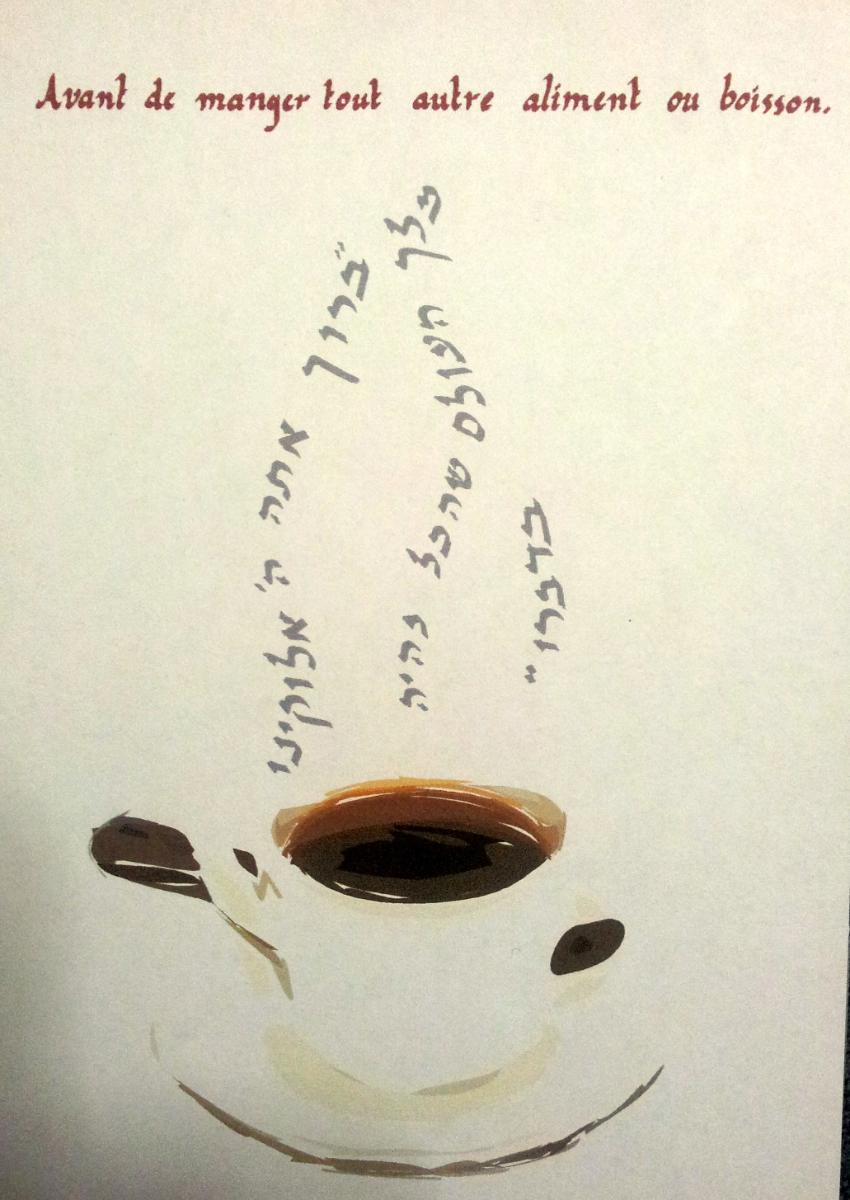 Avant de manger tout autre aliment ou boisson.
"ברוך אתה ה' אלוקינו
מלך העולם שהכל נהיה
בדברו"